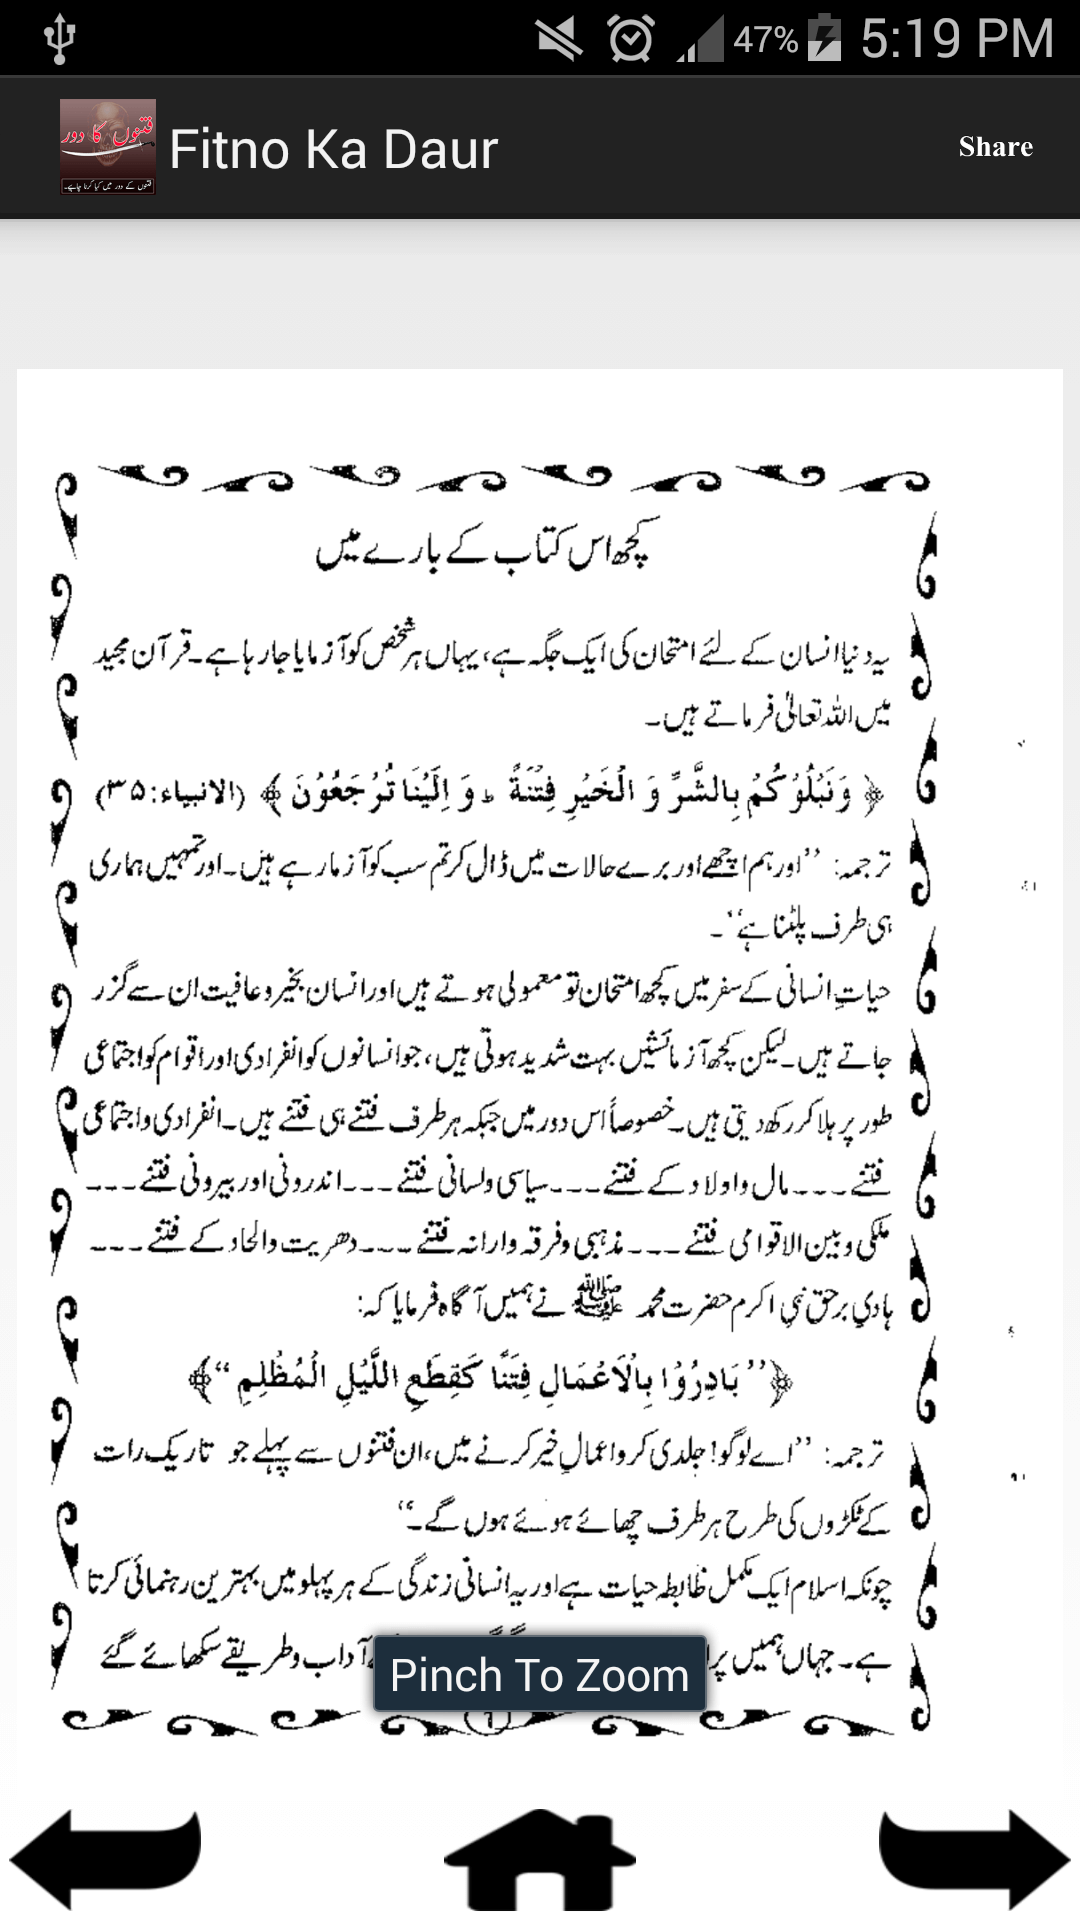 47% 5:19 PM
فتنوں کا دور
فتنوں کے دور میں کیا کرنا چاہیے۔
Fitno Ka Daur
Share
کچھ اس کتاب کے بارے میں
یہ دنیا انسان کے لئے امتحان کی ایک جگہ ہے، یہاں ہر شخص کو آزمایا جا رہا ہے۔ قرآن مجید
میں اللہ تعالیٰ فرماتے ہیں۔
﴿ وَنَبْلُوْكُمْ بِالشَّرِّ وَ الْخَيْرِ فِتْنَةً ؕ وَ اِلَيْنَا تُرْجَعُوْنَ ﴾ (الانبیاء: ۳۵)
ترجمہ: ’’اور ہم اچھے اور برے حالات میں ڈال کر تم سب کو آزما رہے ہیں۔ اور تمہیں ہماری
ہی طرف پلٹنا ہے‘‘۔
حیاتِ انسانی کے سفر میں کچھ امتحان تو معمولی ہوتے ہیں اور انسان بخیر و عافیت ان سے گزر
جاتے ہیں۔ لیکن کچھ آزمائشیں بہت شدید ہوتی ہیں، جو انسانوں کو انفرادی اور اقوام کو اجتماعی
طور پر ہلا کر رکھ دیتی ہیں۔ خصوصاً اس دور میں جبکہ ہر طرف فتنے ہی فتنے ہیں۔ انفرادی و اجتماعی
فتنے ۔۔۔ مال و اولاد کے فتنے ۔۔۔ سیاسی ولسانی فتنے ۔۔۔ اندرونی اور بیرونی فتنے ۔۔۔
ملکی و بین الاقوامی فتنے ۔۔۔ مذہبی و فرقہ وارانہ فتنے ۔۔۔ دھریت والحاد کے فتنے ۔۔۔
ہادیِ برحق نبیِ اکرم حضرت محمد ﷺ نے ہمیں آگاہ فرمایا کہ:
﴿’’بَادِرُوْا بِالْاَعْمَالِ فِتَنًا كَقِطَعِ اللَّيْلِ الْمُظْلِمِ‘‘﴾
ترجمہ: ’’اے لوگو! جلدی کرو اعمالِ خیر کرنے میں، ان فتنوں سے پہلے جو تاریک رات
کے ٹکڑوں کی طرح ہر طرف چھائے ہوئے ہوں گے۔‘‘
چونکہ اسلام ایک مکمل ضابطہ حیات ہے اور یہ انسانی زندگی کے ہر پہلو میں بہترین رہنمائی کرتا
ہے۔ جہاں ہمیں آداب و طریقے سکھائے گئے
Pinch To Zoom
1